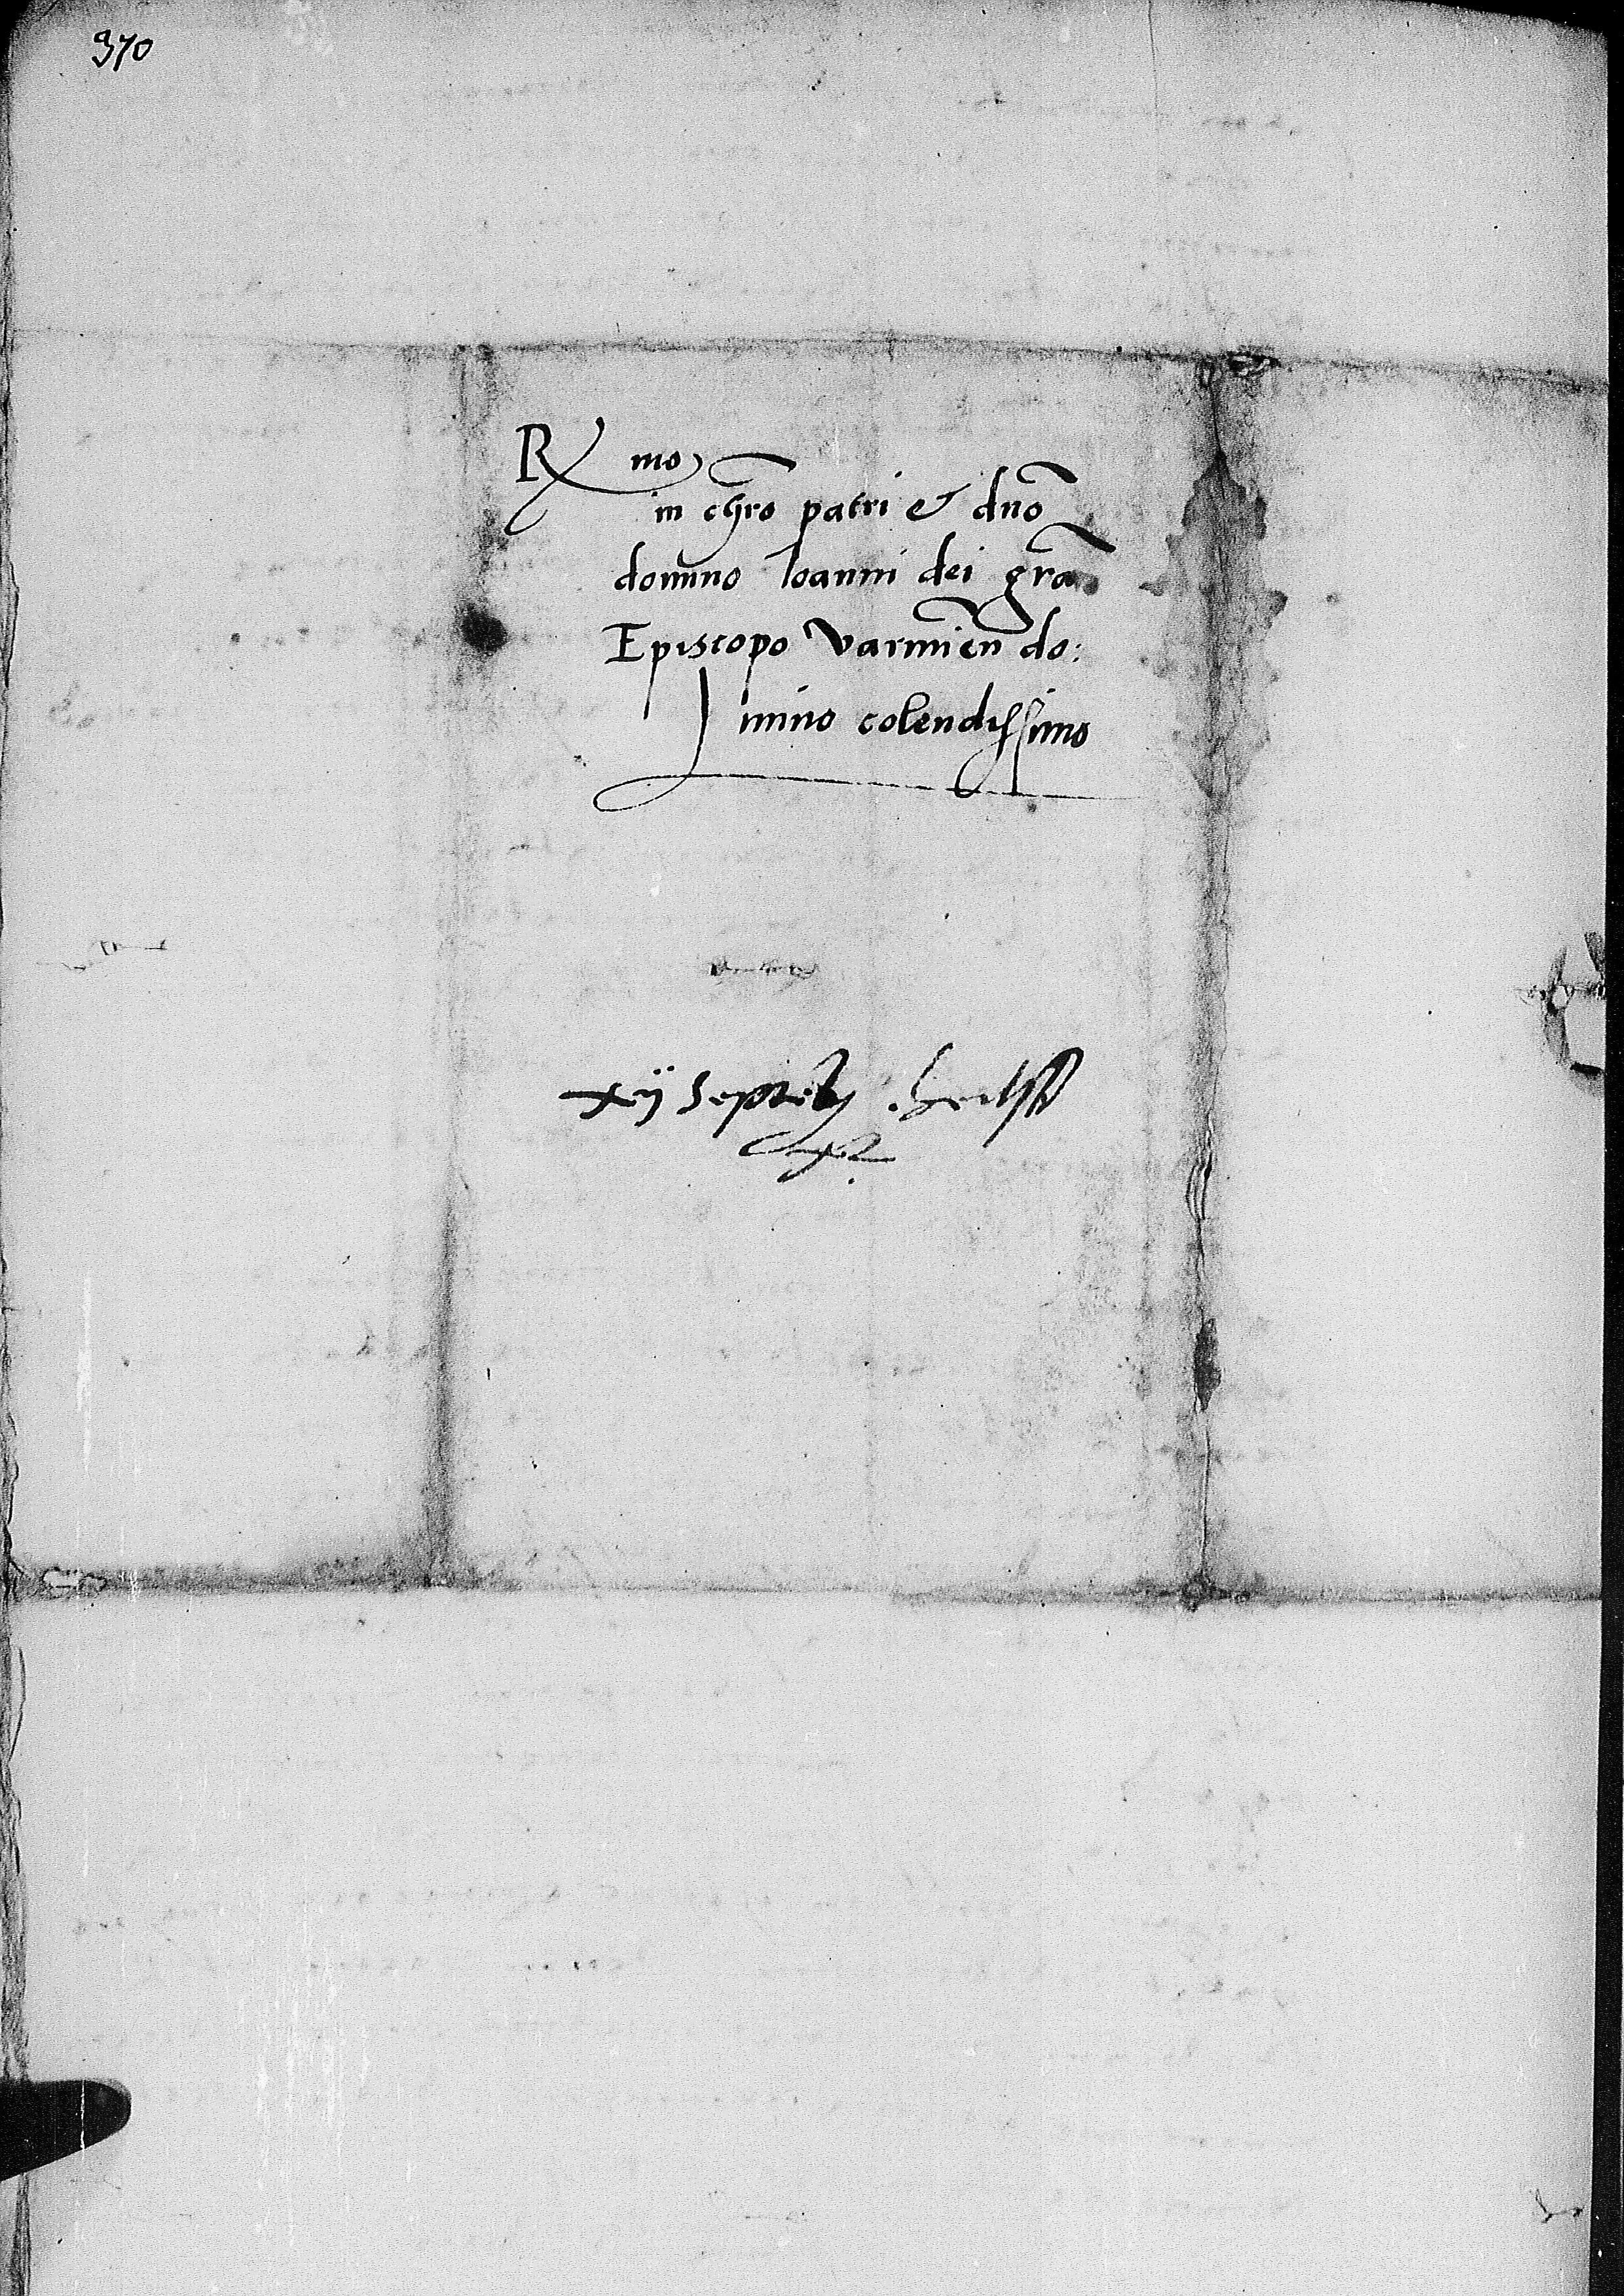 370
Rmo
in chro patri et dno
domino Ioanni dei gra
Episcopo Varmien do:
mino colendissimo
xij Septeb